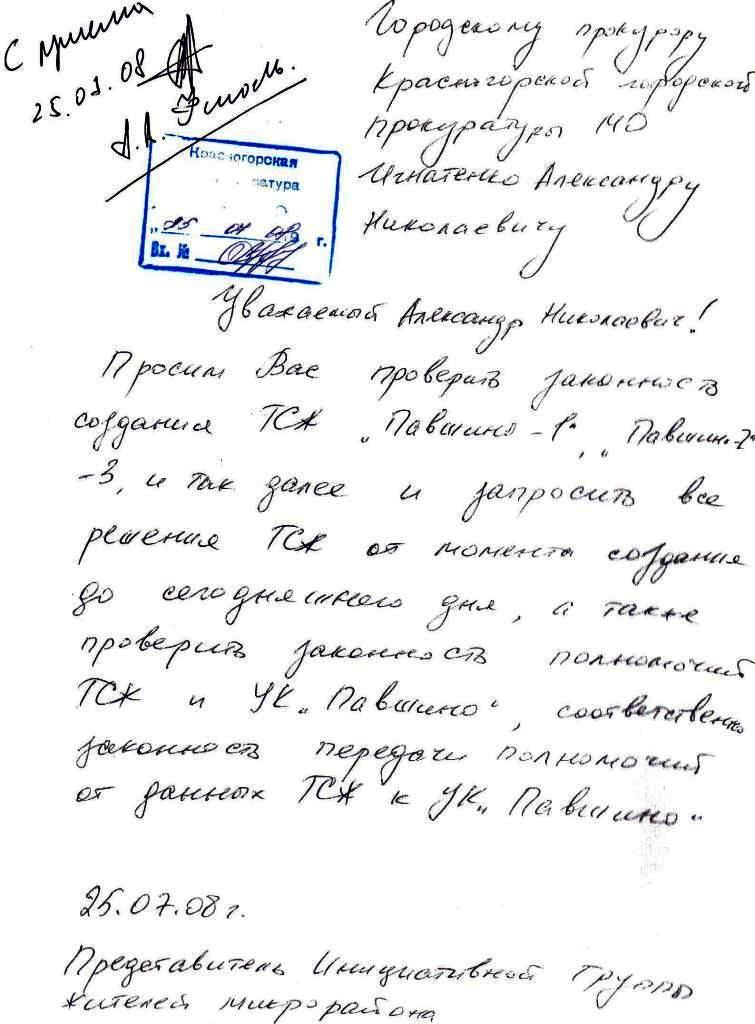 С приема
25.01.08
Городскому прокурору
Красногорской городской
прокуратуры МО
Игнатенко Александру
Николаевичу
Красногорская
атура
г.
Вх. №
Уважаемый Александр Николаевич!
Просим Вас проверить законность
создания ТСЖ „Павшино-1", „Павшино-2"
-3, и так далее и запросить все
решения ТСЖ от момента создания
до сегодняшнего дня, а также
проверить законность полномочий
ТСЖ и УК „Павшино", соответственно
законность передачи полномочий
от данных ТСЖ к УК „Павшино"
25.07.08 г.
Представитель Инициативной Группы
жителей микрорайона